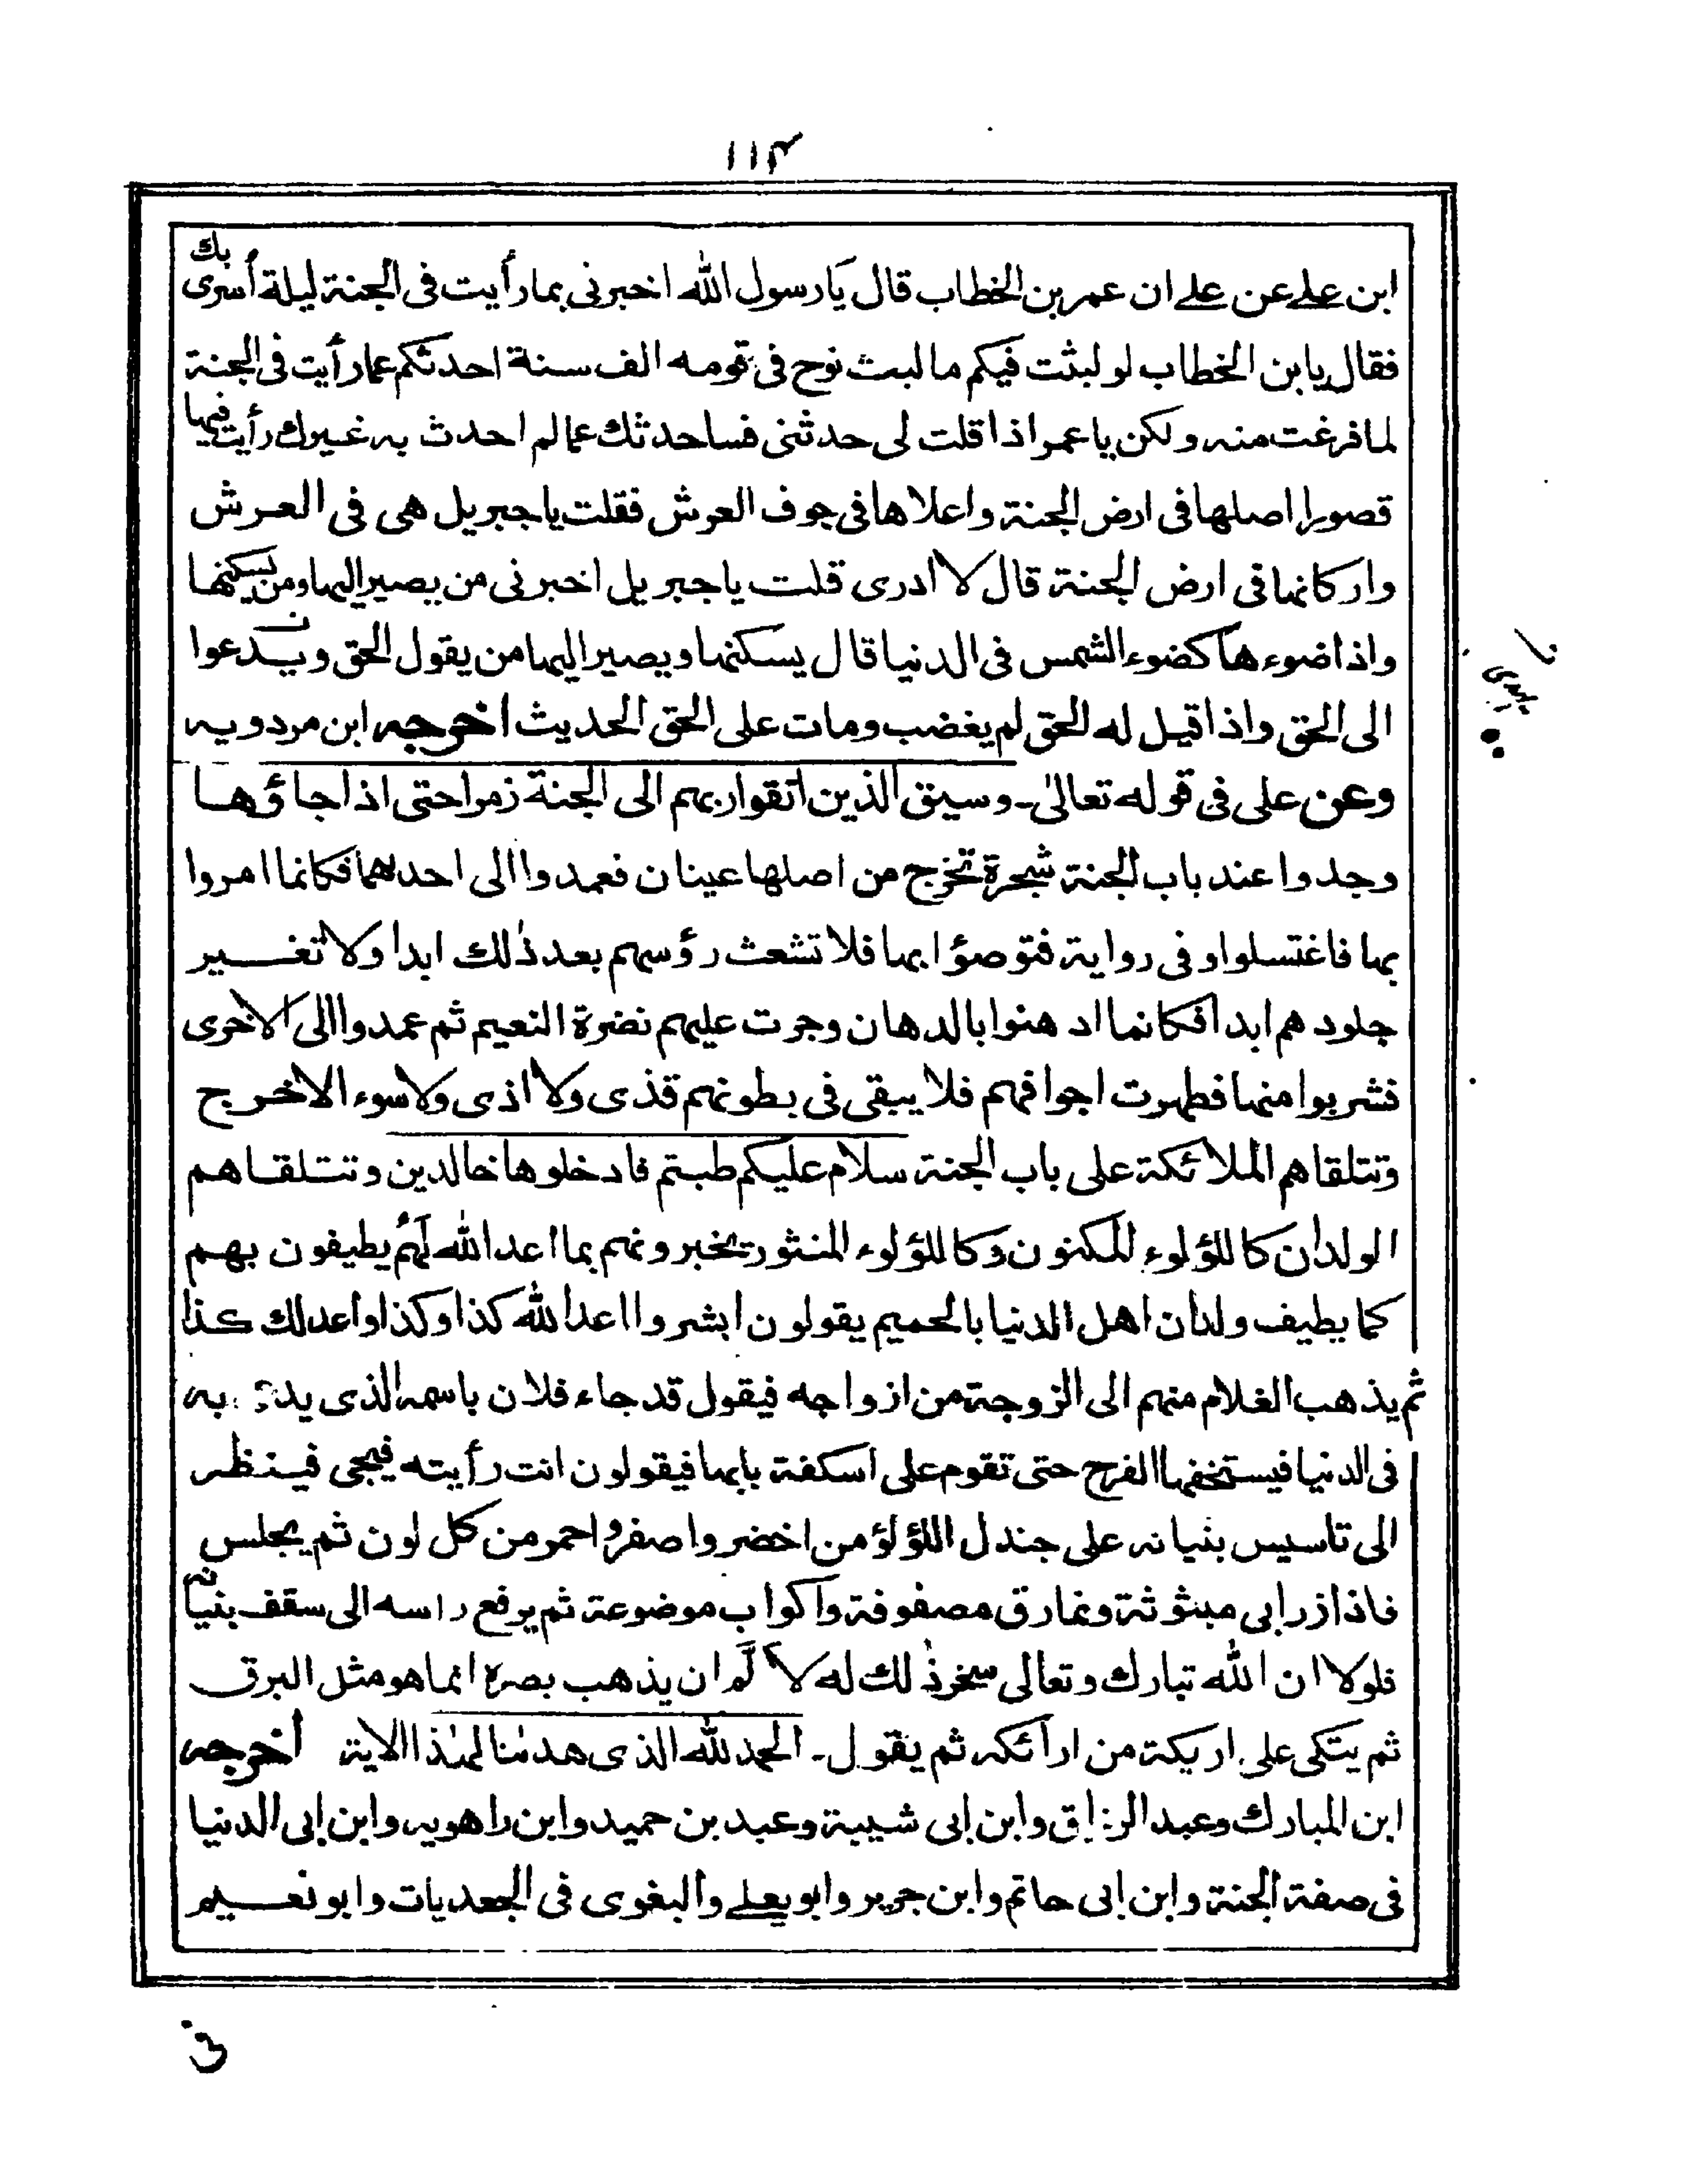 ١١٤
ابن علے عن علے ان عمر بن الخطاب قال يا رسول الله اخبرنى بما رأيت فى الجنة ليلة أسرى بك
فقال يا بن الخطاب لو لبثت فيكم ما لبث نوح فى قومه الف سنة احدثكم عما رأيت فى الجنة
لما فرغت منه ولكن يا عمر اذا قلت لى حدثنى فساحدثك عما لم احدث به غيرك رأيت فيها
قصورا اصلها فى ارض الجنة واعلاها فى جوف العرش فقلت يا جبريل هى فى العرش
واركانها فى ارض الجنة قال لا ادرى قلت يا جبريل اخبرنى من يصير اليها ومن يسكنها
واذا ضوءها كضوء الشمس فى الدنيا قال يسكنها ويصير اليها من يقول الحق ويدعوا
الى الحق واذا قيل له الحق لم يغضب ومات على الحق الحديث اخرجه ابن مردويه
وعن على فى قوله تعالىٰ۔ وسيق الذين اتقوا ربهم الى الجنة زمرا حتى اذا جاؤها
وجدوا عند باب الجنة شجرة تخرج من اصلها عينان فعمدوا الى احدهما فكانما امروا
بها فاغتسلوا وفى رواية فتوضؤا بها فلا تشعث رؤسهم بعد ذلك ابدا ولا تغير
جلودهم ابدا فكانما ادهنوا بالدهان وجرت عليهم نضرة النعيم ثم عمدوا الى الاخرى
فشربوا منها فطهرت اجوافهم فلا يبقى فى بطونهم قذى ولا اذى ولا سوء الاخرج
وتتلقاهم الملائكة على باب الجنة سلام عليكم طبتم فادخلوها خالدين وتتلقاهم
الولدان كاللؤلوء المكنون وكاللؤلوء المنثور تخبرونهم بما اعد الله لهم يطيفون بهم
كما يطيف ولدان اهل الدنيا بالحميم يقولون ابشروا اعد الله كذا وكذا واعد لك كذا
ثم يذهب الغلام منهم الى الزوجة من ازواجه فيقول قد جاء فلان باسمه الذى به
فى الدنيا فيستخفها الفرح حتى تقوم على اسكفة بابها فيقولون انت رأيته فيجى فينظر
الى تاسيس بنيانه على جندل اللؤلؤ من اخضر واصفر واحمر ومن كل لون ثم يجلس
فاذا زرابى مبثوثة ونمارق مصفوفة واكواب موضوعة ثم يرفع راسه الى سقف بنيانه
فلولا ان الله تبارك وتعالى سخر ذلك له لألَمَّ ان يذهب بصره انما هو مثل البرق
ثم يتكى على اريكة من ارائكه ثم يقول۔ الحمد لله الذى هدٰىنا لهٰذا الاية اخرجه
ابن المبارك وعبد الرزاق وابن ابى شيبة وعبد بن حميد وابن راهويه وابن ابى الدنيا
فى صفة الجنة وابن ابى حاتم وابن جرير وابو يعلے والبغوى فى الجعديات وابو نعيم